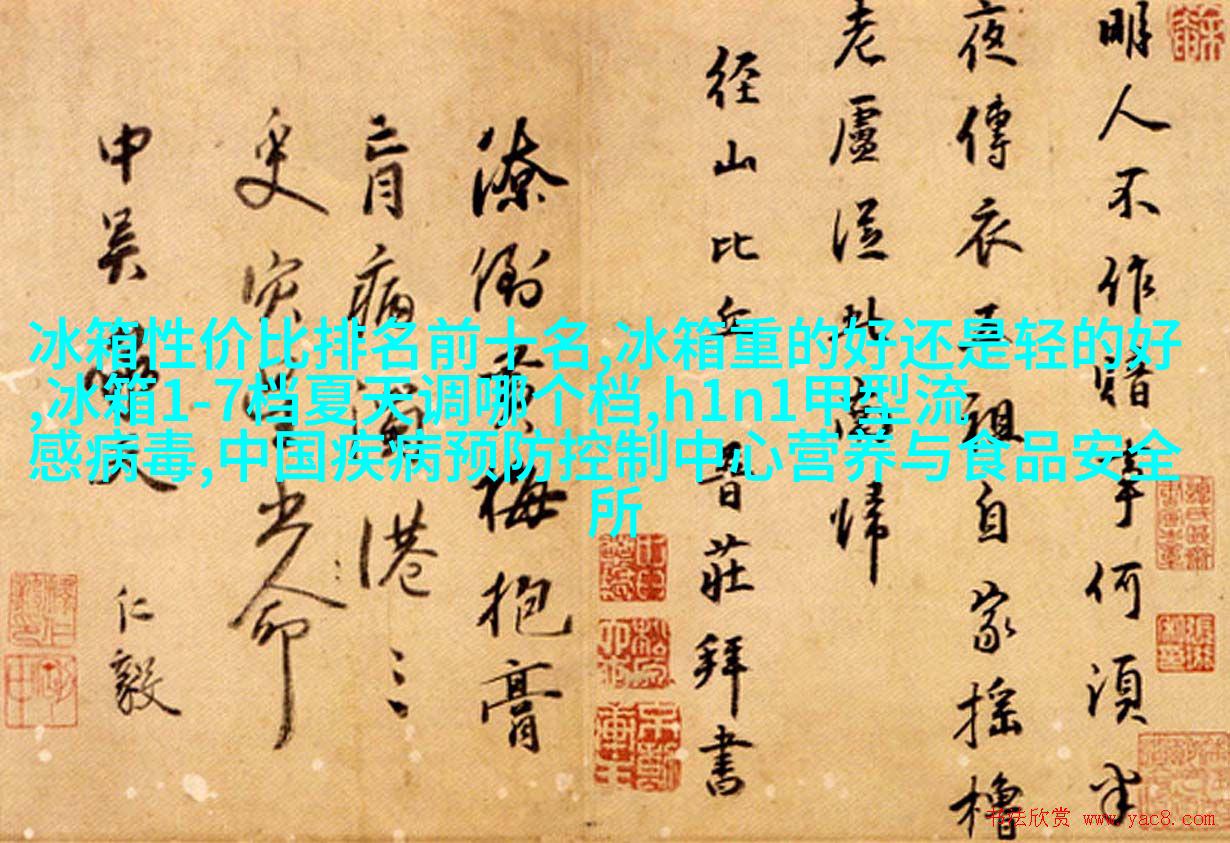 冰箱性价比排名前十名,冰箱重的好还是轻的好
,冰箱1-7档夏天调哪个档,h1n1甲型流
感病毒,中国疾病预防控制中心营养与食品安全
所
明人不作暗事何須半
夜傳衣五祖自家摇櫓
老盧從此南歸
径山比丘莊拜書
潦倒黄梅抱膏
肓病滿港
命
中吴
仁毅
书法欣赏 www.yac8.com